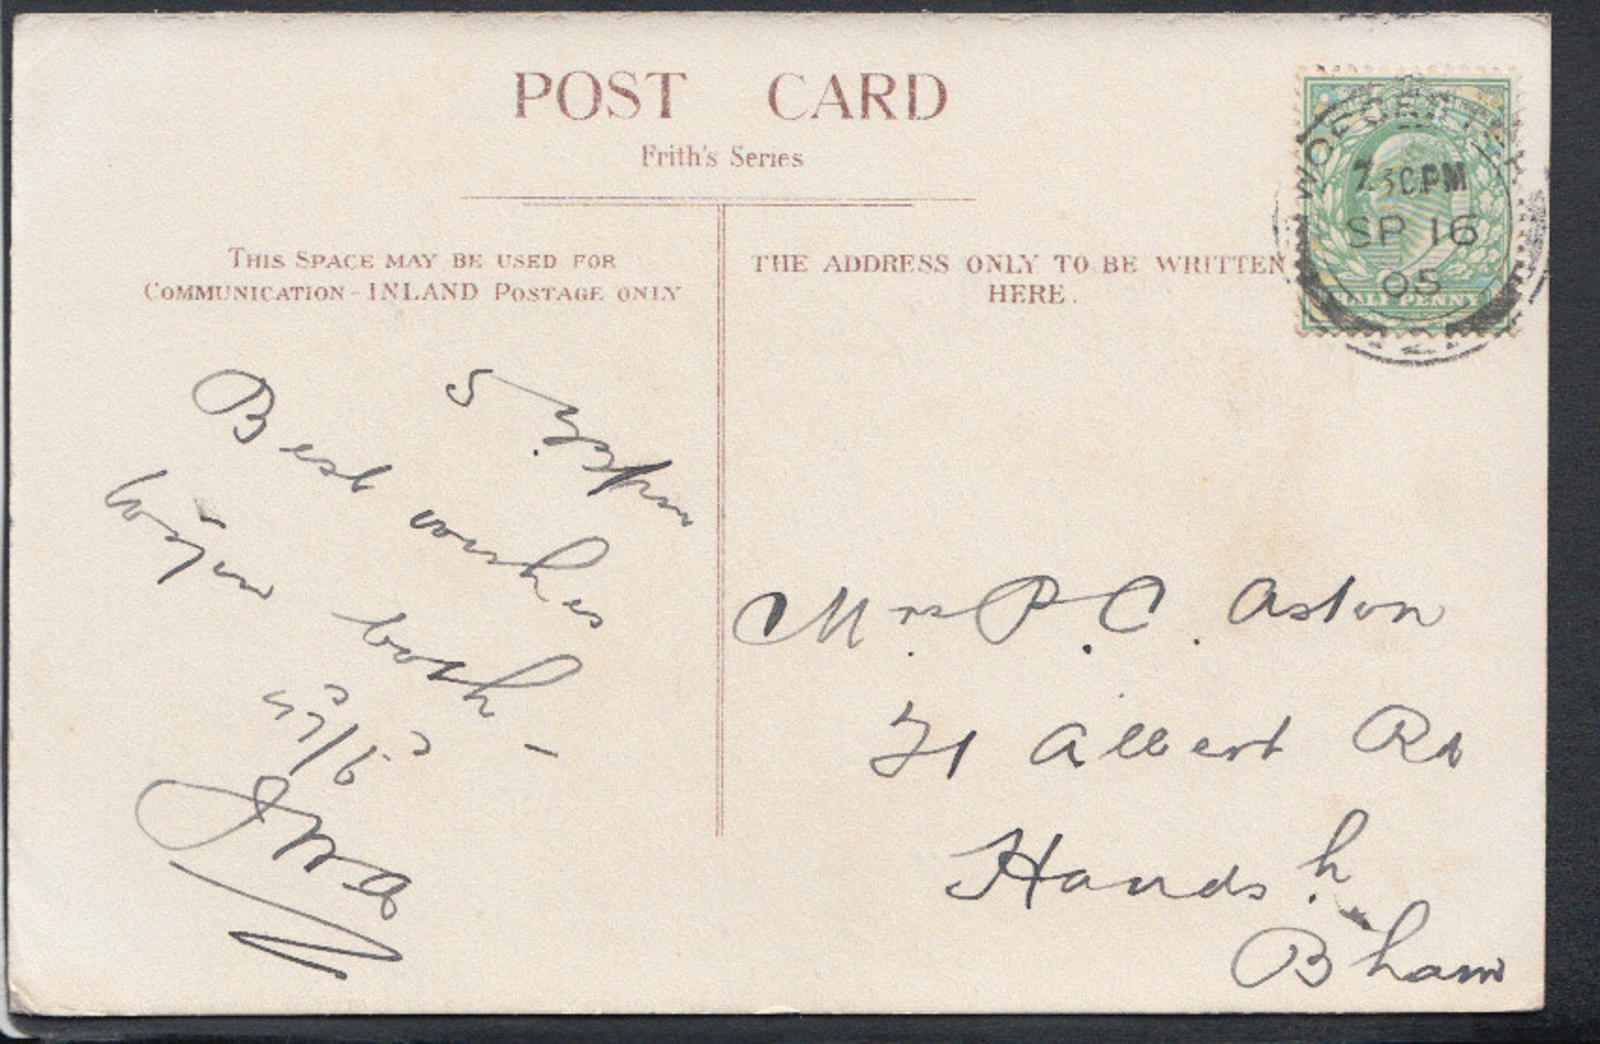 POST CARD
Frith's Series
THIS SPACE MAY BE USED FOR
COMMUNICATION - INLAND POSTAGE ONLY
THE ADDRESS ONLY TO BE WRITTEN
HERE.
7.30PM
SP 16
05
HALF PENNY
5
Best wishes
both -
Mrs. P. C. Aston
71 Albert Rd
Handsh.
Bham